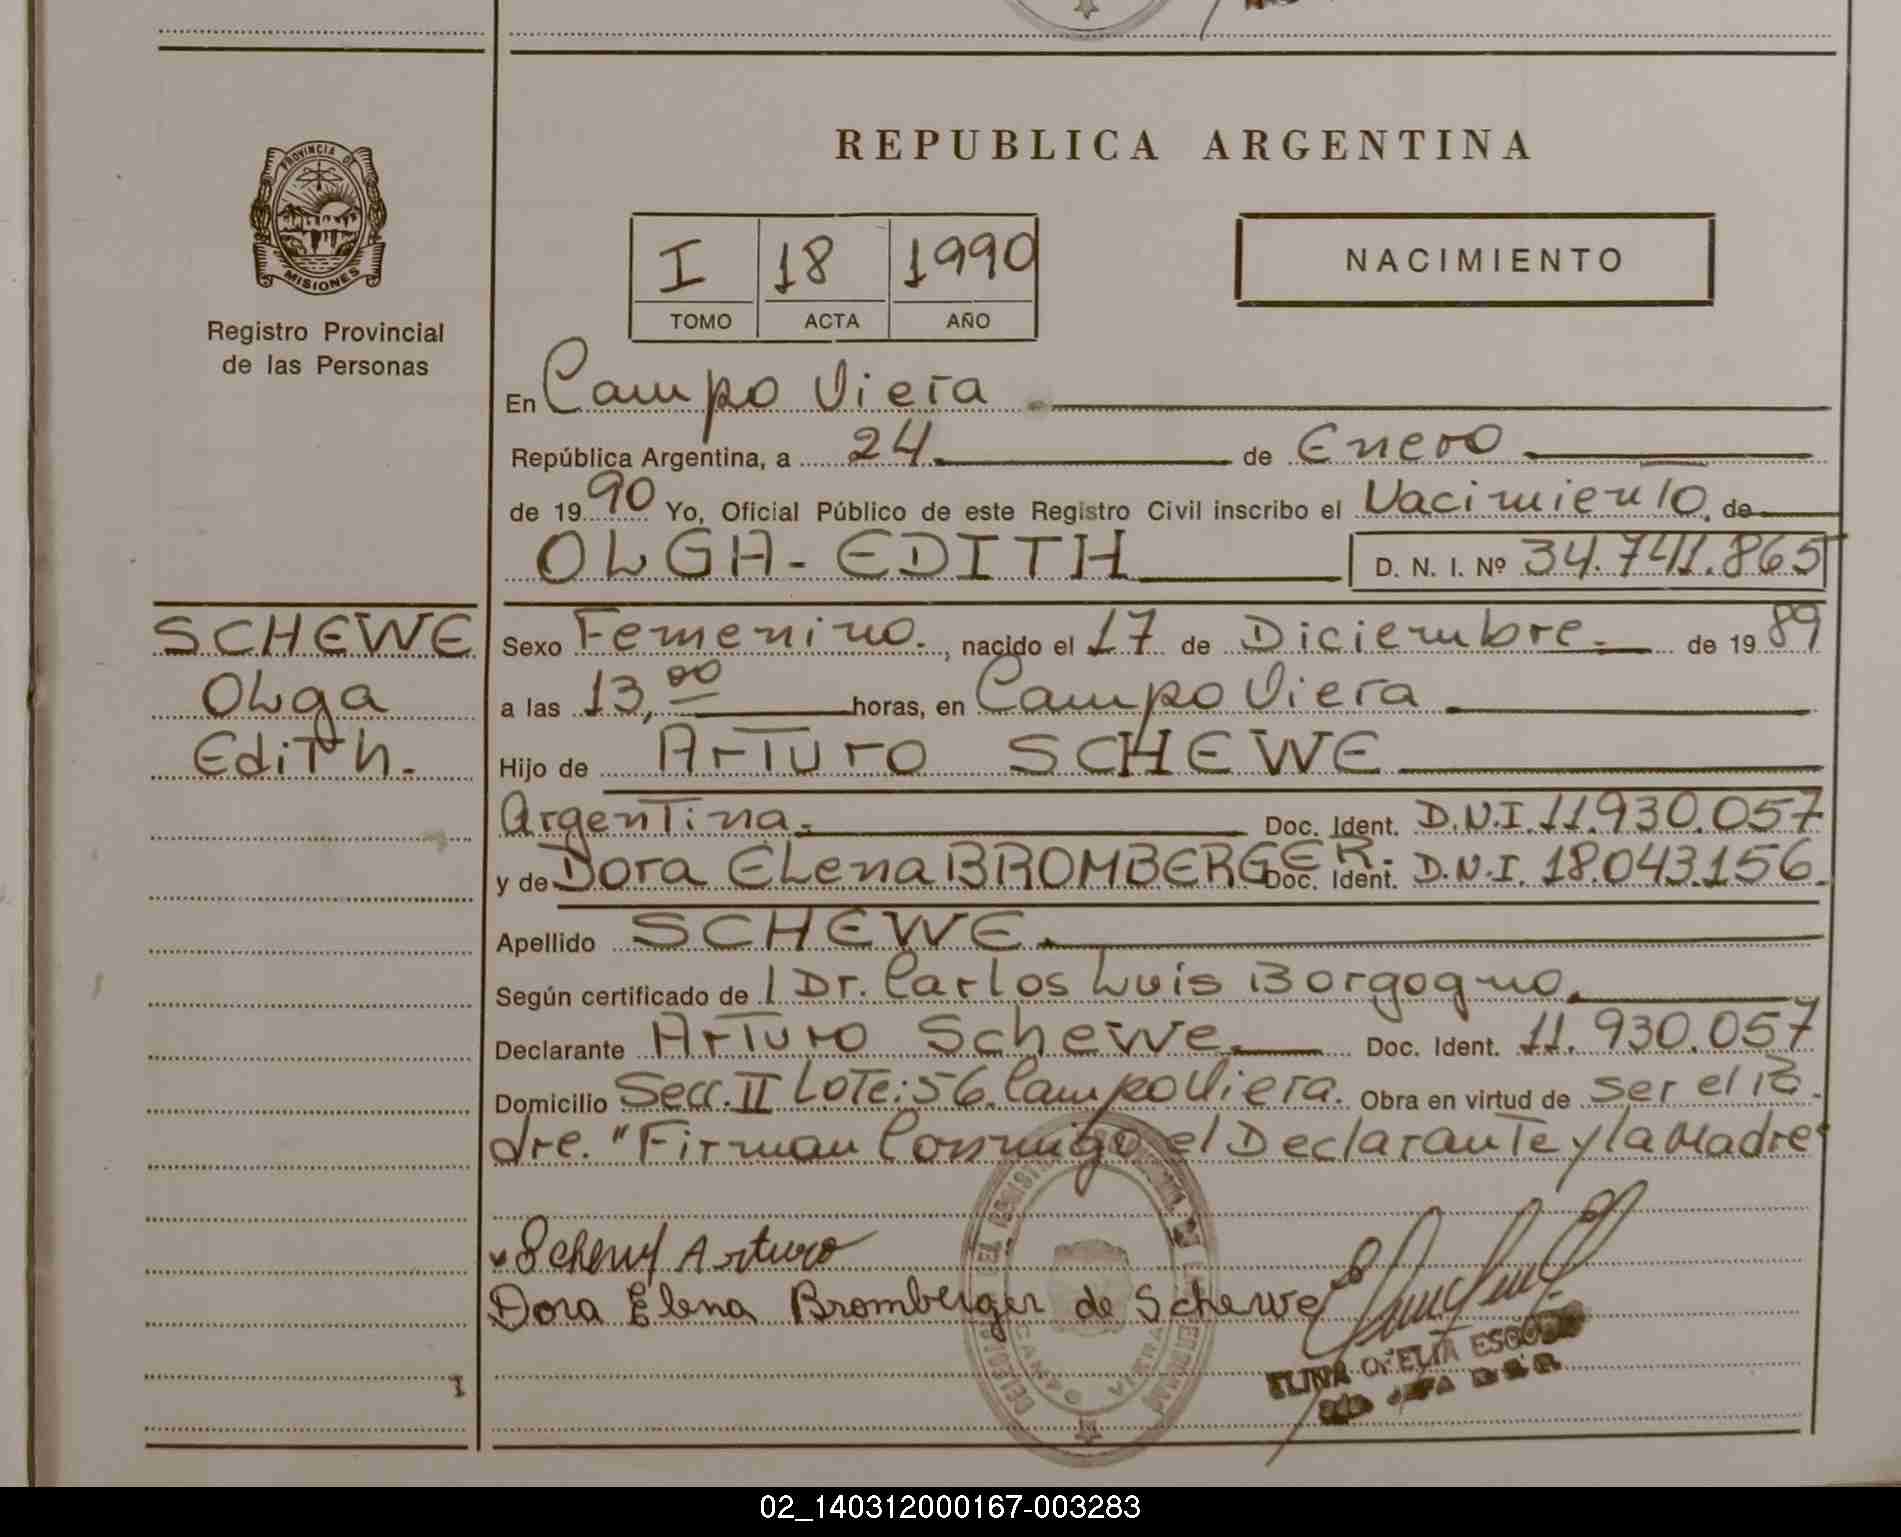 PROVINCIA DE
MISIONES
Registro Provincial
de las Personas
SCHEWE
Olga
Edith.
REPUBLICA ARGENTINA
I 18 1990
TOMO ACTA AÑO
NACIMIENTO
En Campo Viera
República Argentina, a 24 de Enero
de 1990 Yo, Oficial Público de este Registro Civil inscribo el Nacimiento, de
OLGA - EDITH D. N. I. Nº 34.741.865
Sexo Femenino. , nacido el 17 de Diciembre. de 1989
a las 13,00 horas, en Campo Viera
Hijo de Arturo SCHEWE
Argentina. Doc. Ident. D.N.I. 11.930.057
y de Dora Elena BROMBERGER. Doc. Ident. D.N.I. 18.043.156.
Apellido SCHEWE
Según certificado de l Dr. Carlos Luis Borgogno.
Declarante Arturo Schewe Doc. Ident. 11.930.057
Domicilio Secc. II Lote: 56. Campo Viera. Obra en virtud de ser el Pa
dre. "Firman Conmigo el Declarante y la Madre"
Schewe Arturo
Dora Elena Bromberger de Schewe
ELINA OFELIA
02_140312000167-003283